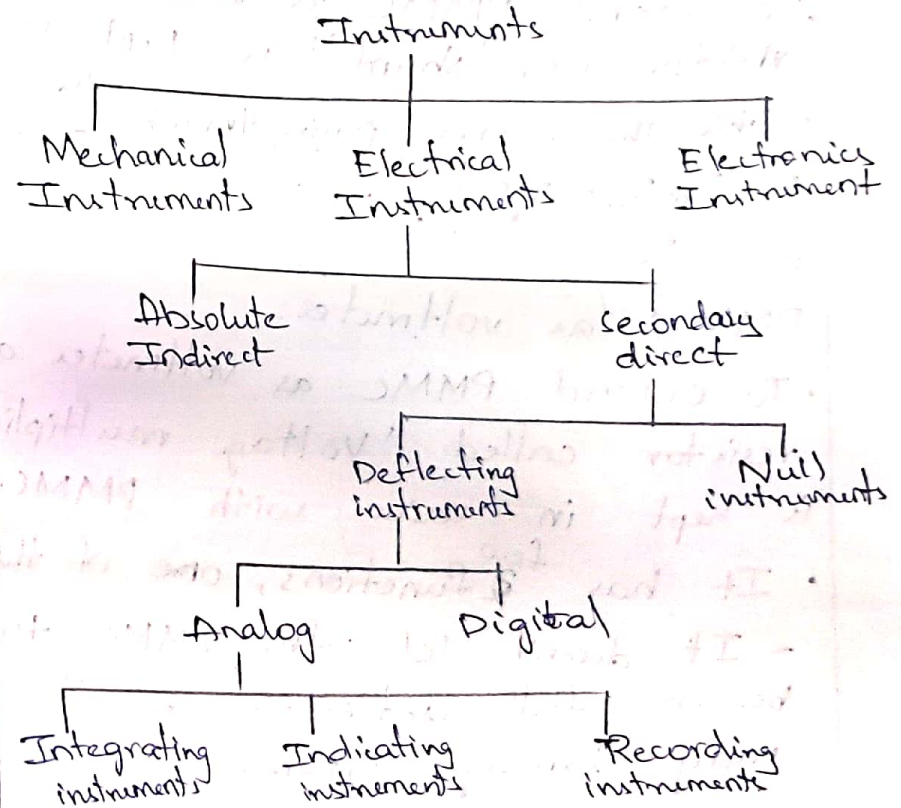 Instruments
Mechanical
Instruments
Electrical
Instruments
Electronics
Instrument
Absolute
Indirect
secondary
direct
Deflecting
instruments
Null
instruments
Analog
Digital
Integrating
instruments
Indicating
instruments
Recording
instruments